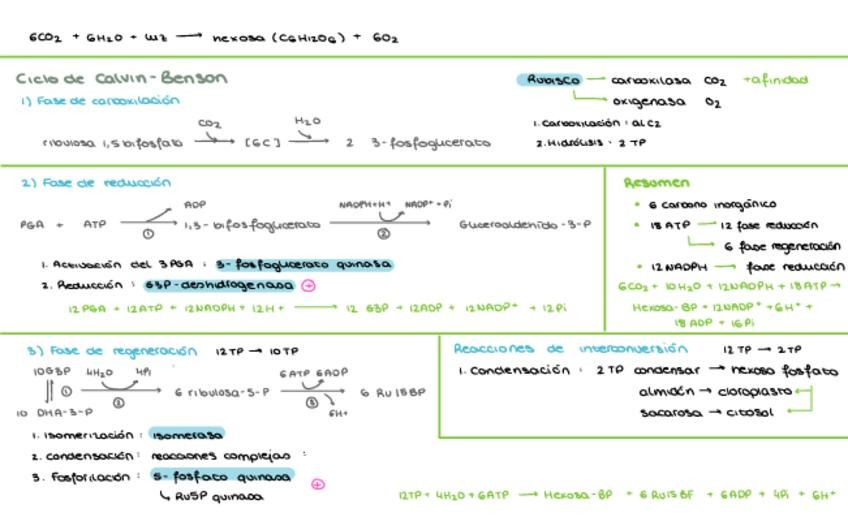 6CO2 + 6H2O + luz → hexosa (C6H12O6) + 6O2
Ciclo de Calvin-Benson
1) Fase de carboxilación
ribulosa 1,5 bifosfato CO2 → [6C] H2O → 2 3-fosfoglicerato
Rubisco → carboxilasa CO2 +afinidad
→ oxigenasa O2
1. Carboxilación : al C2
2. Hidrólisis : 2 TP
2) Fase de reducción
PGA + ATP → ADP 1,3-bifosfoglicerato NADPH+H+ → NADP+ + Pi Gliceraldehído-3-P
① ②
1. Activación del 3PGA : 3-fosfoglicerato quinasa
2. Reducción : G3P-deshidrogenasa ⊕
12 PGA + 12 ATP + 12 NADPH + 12 H+ → 12 G3P + 12 ADP + 12 NADP+ + 12 Pi
Resumen
• 6 carbono inorgánico
• 18 ATP → 12 fase reducción
→ 6 fase regeneración
• 12 NADPH → fase reducción
6CO2 + 10H2O + 12NADPH + 18ATP →
Hexosa-BP + 12NADP+ + 6H+ +
18 ADP + 16Pi
3) Fase de regeneración 12TP → 10TP
10G3P 4H2O 4Pi 6ATP 6ADP
① → 6 ribulosa-5-P → 6 Ru15BP
② ③ 6H+
10 DHA-3-P
1. Isomerización : isomerasa
2. condensación : reacciones complejas :
3. Fosforilación : 5-fosfato quinasa ⊕
↳ Ru5P quinasa
Reacciones de interconversión 12TP → 2TP
1. Condensación : 2 TP condensar → hexosa fosfato
almidón → cloroplasto
sacarosa → citosol
12TP + 4H2O + 6ATP → Hexosa-BP + 6 Ru15BF + 6ADP + 4Pi + 6H+